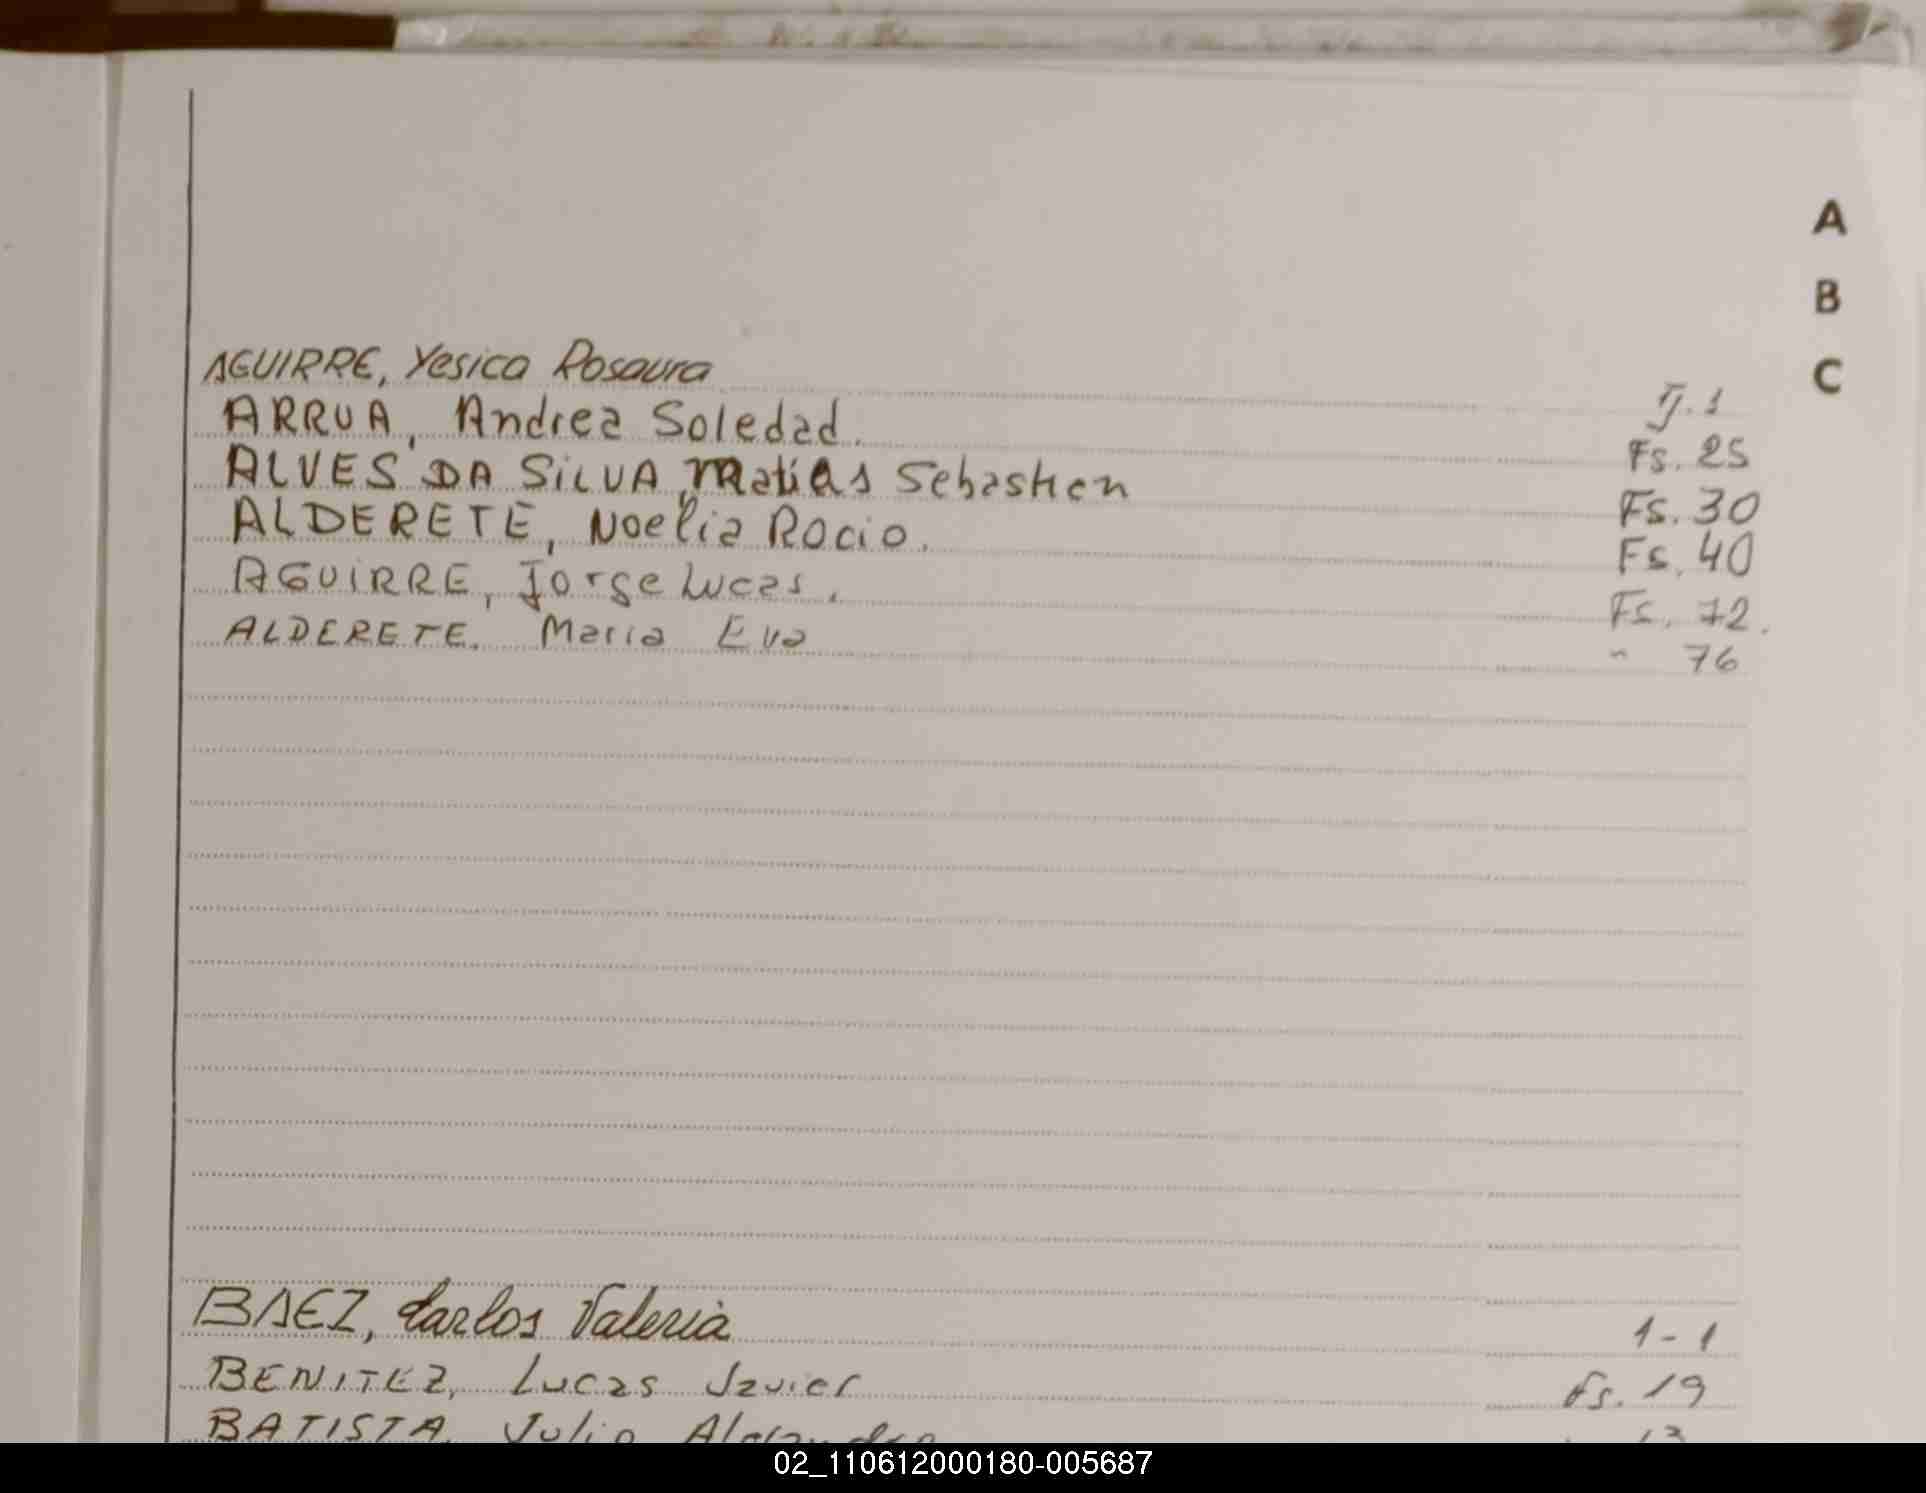 A
B
C
AGUIRRE, Yesica Rosaura
ARRUA, Andrea Soledad. Fs. 25
ALVES DA SILVA, Matias Sebastien Fs. 30
ALDERETE, Noelia Rocio. Fs. 40
AGUIRRE, Jorge Lucas. Fs. 72.
ALDERETE. Maria Eva " 76
BAEZ, Carlos Valeria 1-1
BENITEZ, Lucas Javier Fs. 19
BATISTA, Julio 13
02_110612000180-005687